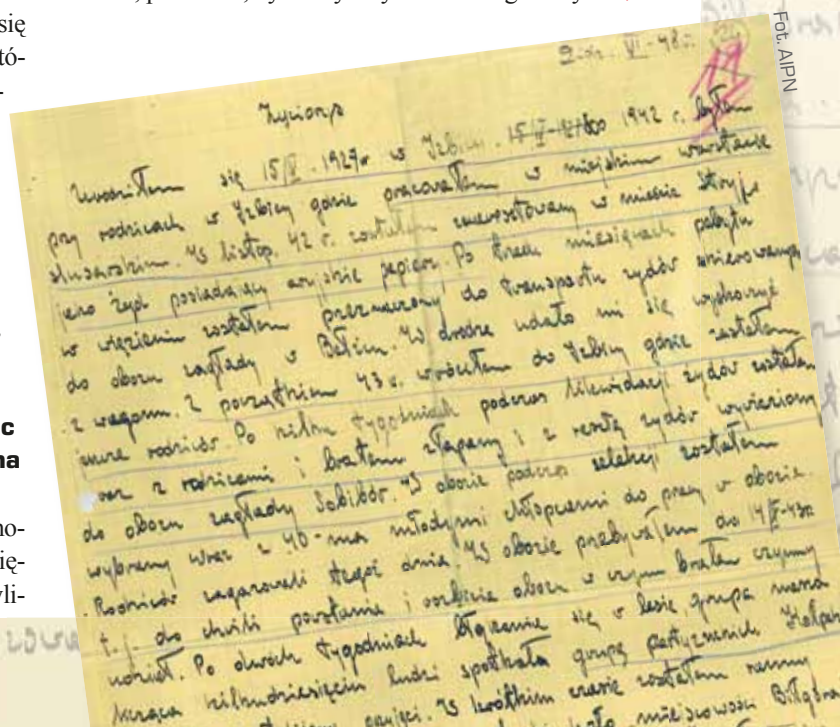 się
tó-
Fot. AIPN
VI-48
Życiorys
Urodziłem się 15/V. 1927r w Izbicy. 1942 r. byłem
przy rodzicach w Izbicy gdzie pracowałem w miejskim warsztacie
ślusarskim. W listop. 42 r. zostałem zaaresztowany w mieście Stryju
jako żyd posiadający aryjskie papiery. Po trzech miesiącach pobytu
w więzieniu zostałem przeznaczony do transportu żydów skierowanych
do obozu zagłady w Bełżcu. W drodze udało mi się wyskoczyć
z wagonu. Z początkiem 43 r. wróciłem do Izbicy gdzie zastałem
rodziców. Po kilku tygodniach podczas likwidacji żydów zostałem
wraz z rodzicami i bratem złapany i z resztą żydów wywieziony
do obozu zagłady Sobibór. W obozie podczas selekcji zostałem
wybrany wraz z 40-ma młodymi chłopcami do pracy w obozie.
Rodziców zagazowali tegoż dnia. W obozie przebywałem do 14/X-43r.
t.j. do chwili powstania i rozbicia obozu w czym brałem czynny
udział. Po dwóch tygodniach błąkania się w lesie, grupa nasza
licząca kilkudziesięciu ludzi spotkała grupę partyzancką
W krótkim czasie zostałem ranny
miejscowości
c
na
no-
ię-
yli-